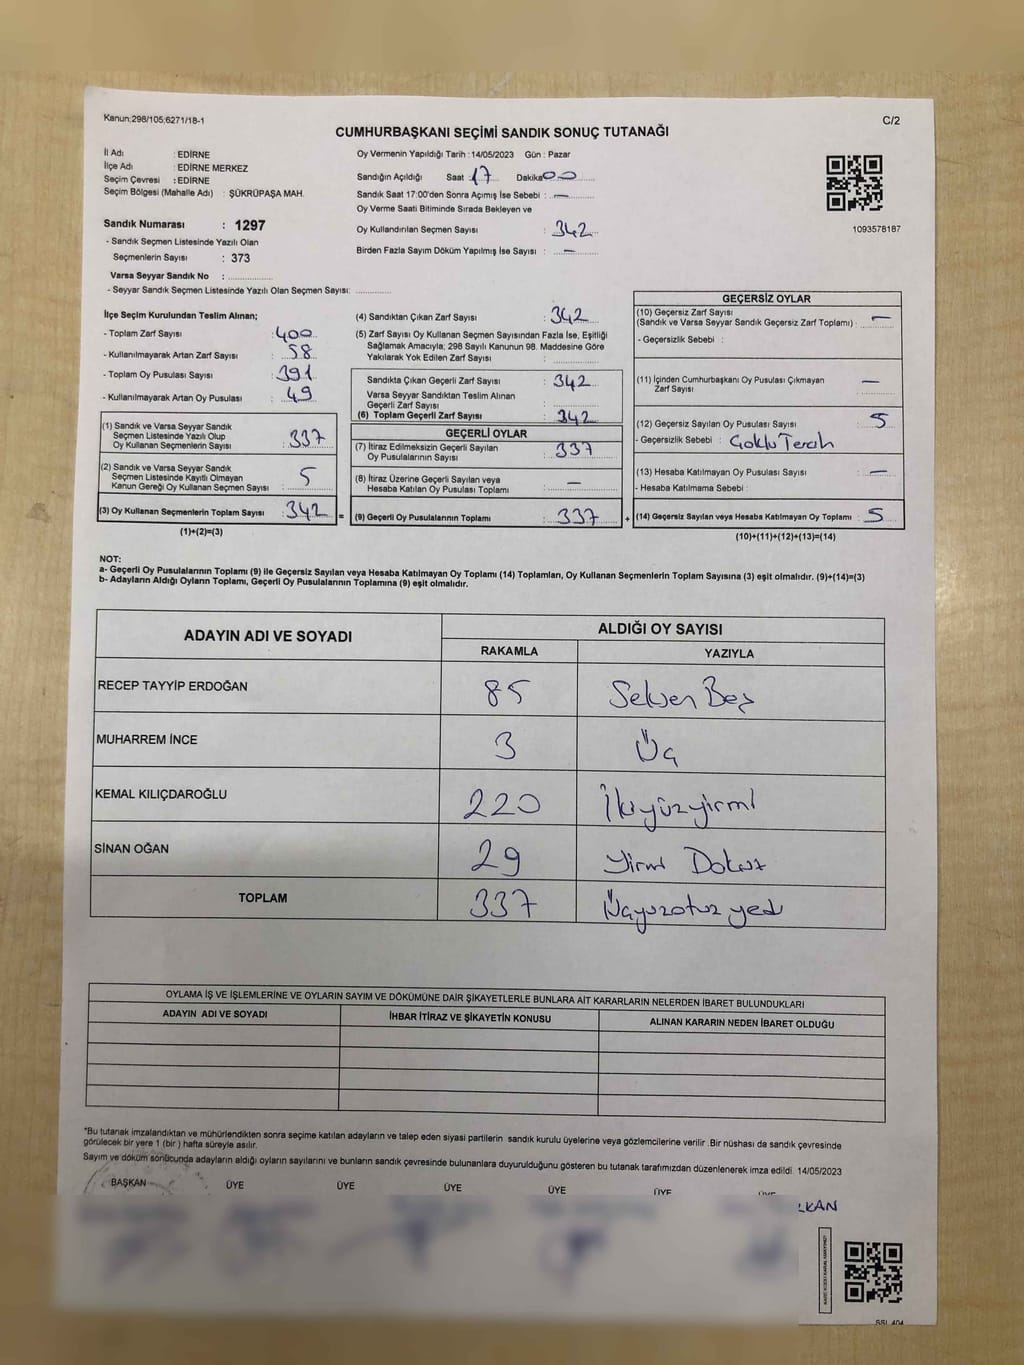 Kanun:298/105;6271/18-1
C/2
CUMHURBAŞKANI SEÇİMİ SANDIK SONUÇ TUTANAĞI
İl Adı : EDİRNE
İlçe Adı : EDİRNE MERKEZ
Seçim Çevresi : EDİRNE
Seçim Bölgesi (Mahalle Adı) : ŞÜKRÜPAŞA MAH.
Sandık Numarası : 1297
- Sandık Seçmen Listesinde Yazılı Olan
Seçmenlerin Sayısı : 373
Varsa Seyyar Sandık No : ..............
- Seyyar Sandık Seçmen Listesinde Yazılı Olan Seçmen Sayısı: ............
Oy Vermenin Yapıldığı Tarih : 14/05/2023 Gün : Pazar
Sandığın Açıldığı Saat 17 Dakika 00
Sandık Saat 17:00'den Sonra Açımış İse Sebebi : —
Oy Verme Saati Bitiminde Sırada Bekleyen ve
Oy Kullandırılan Seçmen Sayısı : 342
Birden Fazla Sayım Döküm Yapılmış İse Sayısı : —
1093578187
İlçe Seçim Kurulundan Teslim Alınan;
- Toplam Zarf Sayısı : 400
- Kullanılmayarak Artan Zarf Sayısı : 58
- Toplam Oy Pusulası Sayısı : 391
- Kullanılmayarak Artan Oy Pusulası : 49
(1) Sandık ve Varsa Seyyar Sandık
Seçmen Listesinde Yazılı Olup
Oy Kullanan Seçmenlerin Sayısı : 337
(2) Sandık ve Varsa Seyyar Sandık
Seçmen Listesinde Kayıtlı Olmayan
Kanun Gereği Oy Kullanan Seçmen Sayısı : 5
(3) Oy Kullanan Seçmenlerin Toplam Sayısı : 342 =
(1)+(2)=(3)
(4) Sandıktan Çıkan Zarf Sayısı : 342
(5) Zarf Sayısı Oy Kullanan Seçmen Sayısından Fazla İse, Eşitliği
Sağlamak Amacıyla; 298 Sayılı Kanunun 98. Maddesine Göre
Yakılarak Yok Edilen Zarf Sayısı :
Sandıkta Çıkan Geçerli Zarf Sayısı : 342
Varsa Seyyar Sandıktan Teslim Alınan
Geçerli Zarf Sayısı :
(6) Toplam Geçerli Zarf Sayısı : 342
GEÇERLİ OYLAR
(7) İtiraz Edilmeksizin Geçerli Sayılan
Oy Pusulalarının Sayısı : 337
(8) İtiraz Üzerine Geçerli Sayılan veya
Hesaba Katılan Oy Pusulası Toplamı : —
(9) Geçerli Oy Pusulalarının Toplamı : 337 +
GEÇERSİZ OYLAR
(10) Geçersiz Zarf Sayısı
(Sandık ve Varsa Seyyar Sandık Geçersiz Zarf Toplamı) : —
- Geçersizlik Sebebi :
(11) İçinden Cumhurbaşkanı Oy Pusulası Çıkmayan
Zarf Sayısı : —
(12) Geçersiz Sayılan Oy Pusulası Sayısı : 5
- Geçersizlik Sebebi : Çoklu Tercih
(13) Hesaba Katılmayan Oy Pusulası Sayısı : —
- Hesaba Katılmama Sebebi :
(14) Geçersiz Sayılan veya Hesaba Katılmayan Oy Toplamı : 5
(10)+(11)+(12)+(13)=(14)
NOT:
a- Geçerli Oy Pusulalarının Toplamı (9) ile Geçersiz Sayılan veya Hesaba Katılmayan Oy Toplamı (14) Toplamları, Oy Kullanan Seçmenlerin Toplam Sayısına (3) eşit olmalıdır. (9)+(14)=(3)
b- Adayların Aldığı Oyların Toplamı, Geçerli Oy Pusulalarının Toplamına (9) eşit olmalıdır.
ADAYIN ADI VE SOYADI
ALDIĞI OY SAYISI
RAKAMLA YAZIYLA
RECEP TAYYİP ERDOĞAN 85 Seksen Beş
MUHARREM İNCE 3 Üç
KEMAL KILIÇDAROĞLU 220 İkiyüzyirmi
SİNAN OĞAN 29 Yirmi Dokuz
TOPLAM 337 Üçyüzotuz yedi
OYLAMA İŞ VE İŞLEMLERİNE VE OYLARIN SAYIM VE DÖKÜMÜNE DAİR ŞİKAYETLERLE BUNLARA AİT KARARLARIN NELERDEN İBARET BULUNDUKLARI
ADAYIN ADI VE SOYADI İHBAR İTİRAZ VE ŞİKAYETİN KONUSU ALINAN KARARIN NEDEN İBARET OLDUĞU
*Bu tutanak imzalandıktan ve mühürlendikten sonra seçime katılan adayların ve talep eden siyasi partilerin sandık kurulu üyelerine veya gözlemcilerine verilir .Bir nüshası da sandık çevresinde
görülecek bir yere 1 (bir ) hafta süreyle asılır.
Sayım ve döküm sonucunda adayların aldığı oyların sayılarını ve bunların sandık çevresinde bulunanlara duyurulduğunu gösteren bu tutanak tarafımızdan düzenlenerek imza edildi. 14/05/2023
BAŞKAN ÜYE ÜYE ÜYE ÜYE ÜYE ÜYE
LKAN